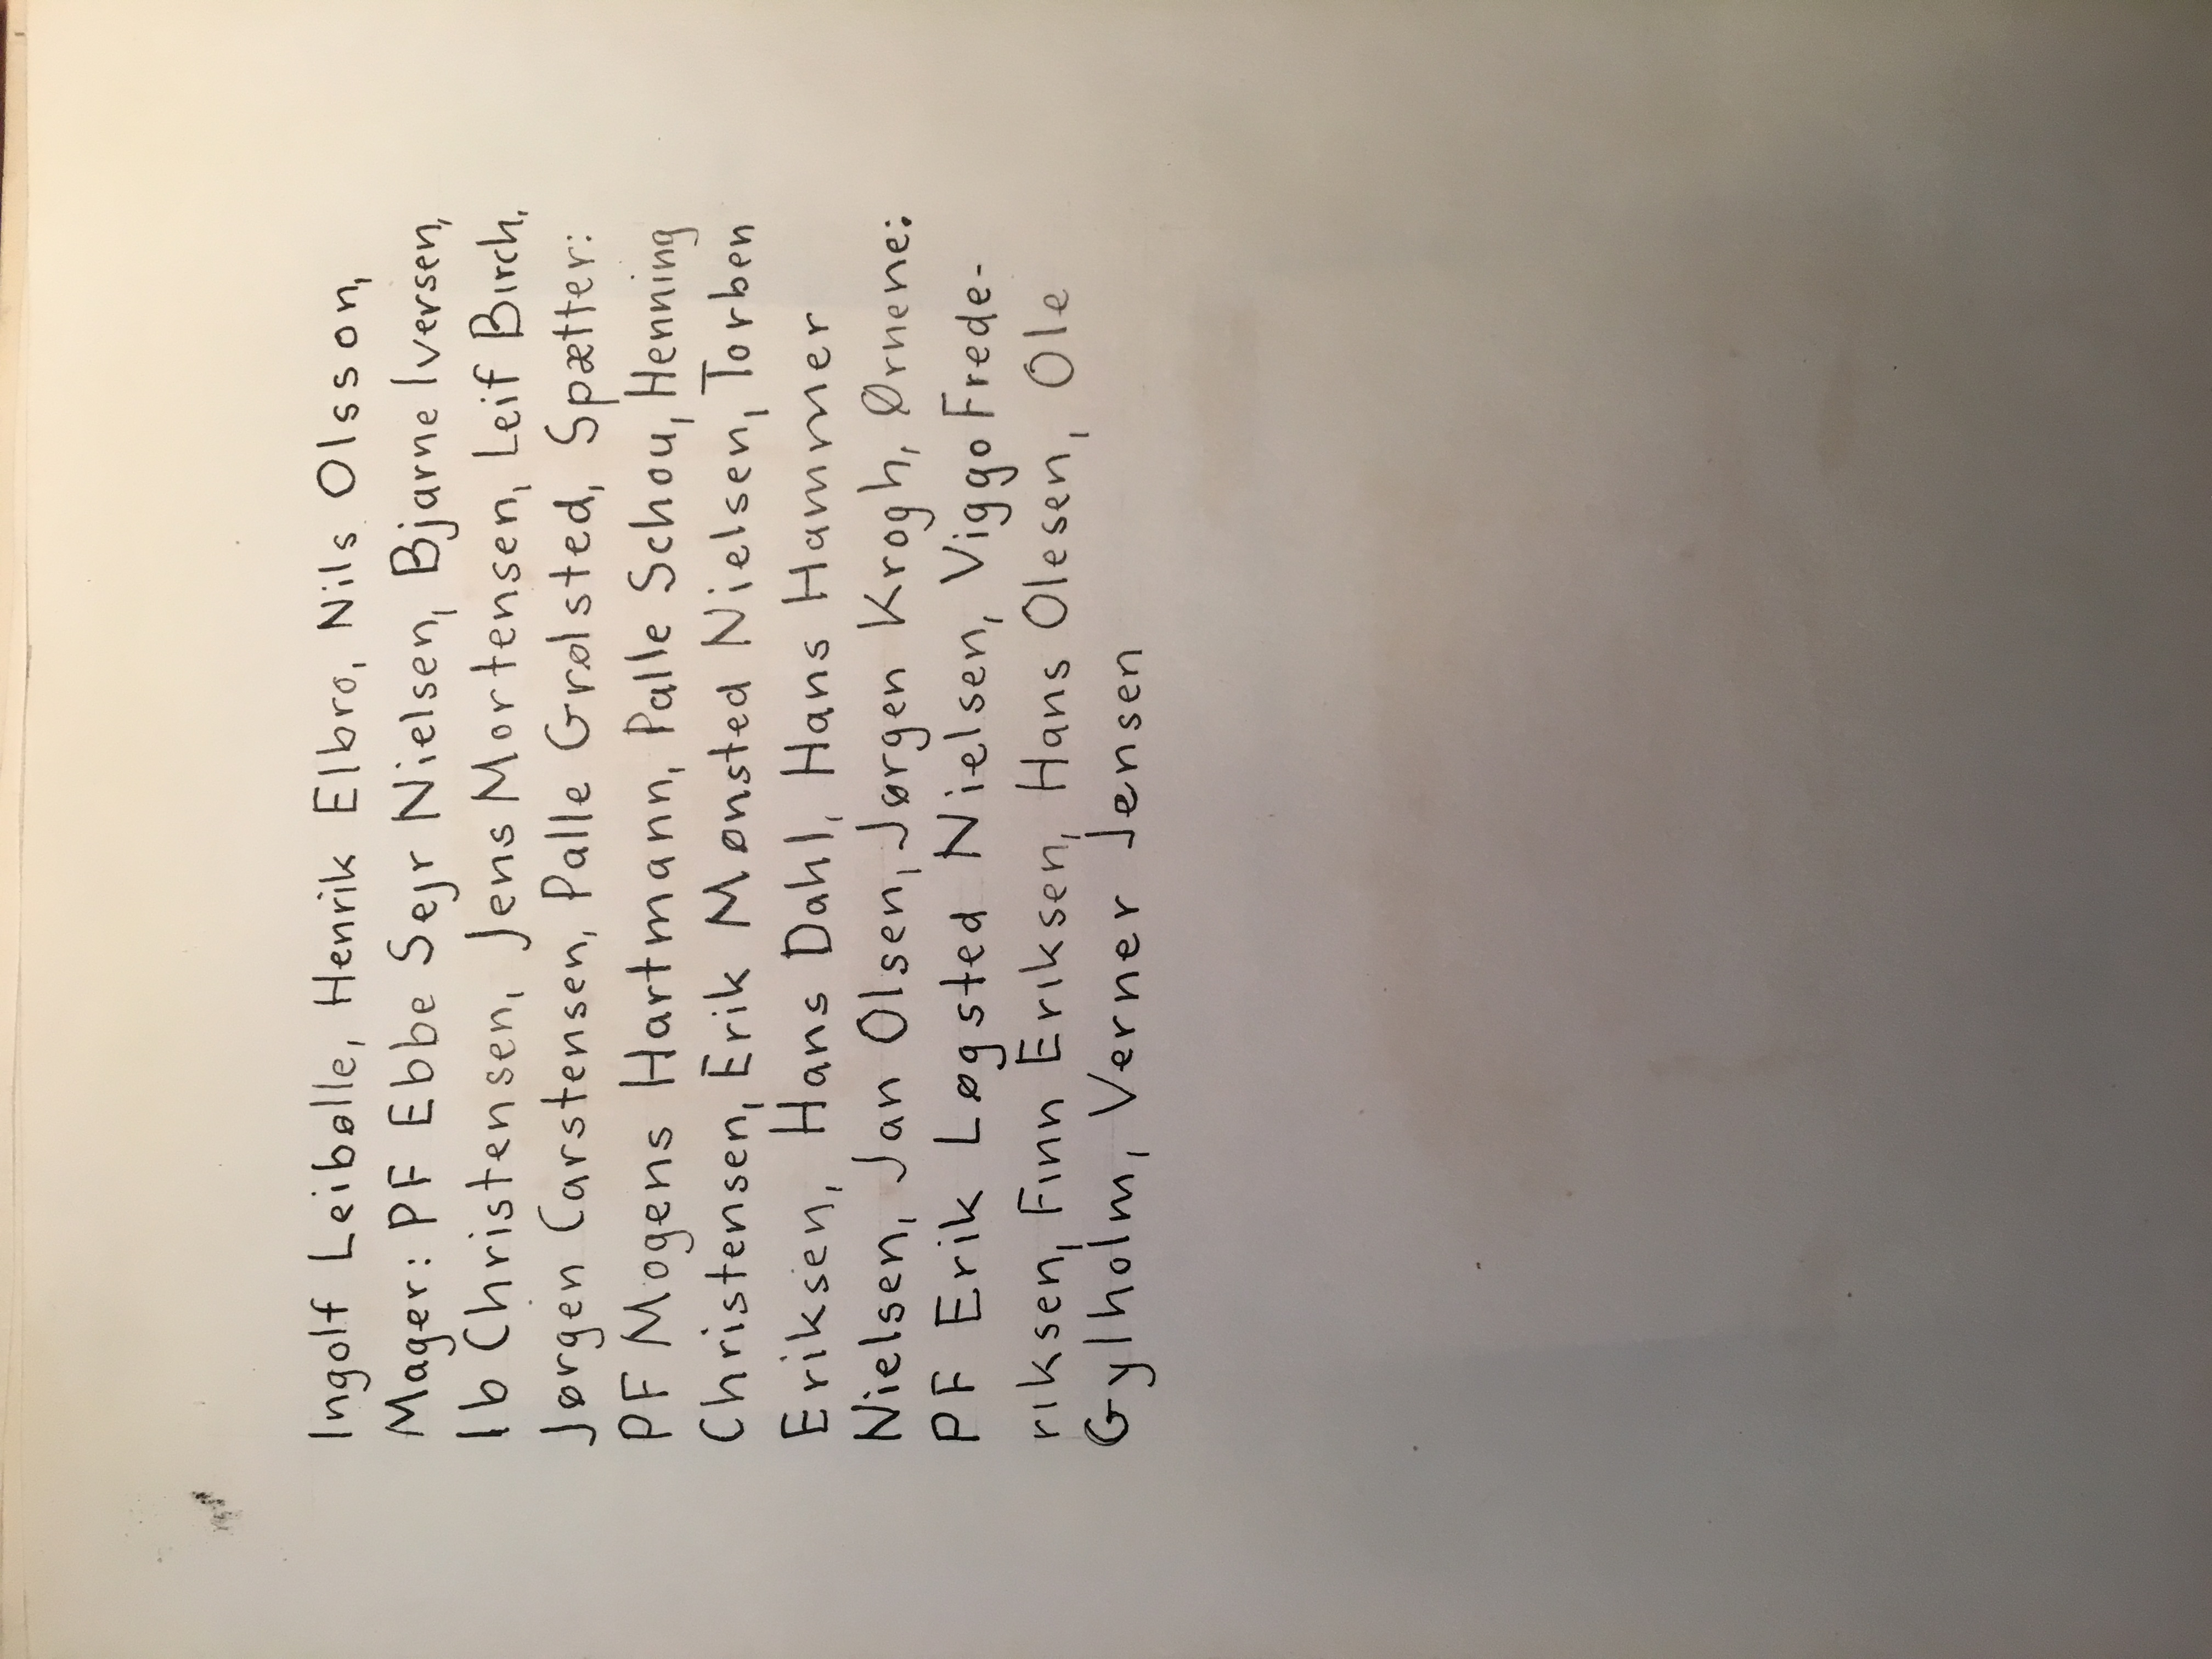 Ingolf Leibølle, Henrik Elbro, Nils Olsson,
Mager: PF Ebbe Sejr Nielsen, Bjarne Iversen,
Ib Christensen, Jens Mortensen, Leif Birch,
Jørgen Carstensen, Palle Grølsted, Spætter:
PF Mogens Hartmann, Palle Schou, Henning
Christensen, Erik Mønsted Nielsen, Torben
Eriksen, Hans Dahl, Hans Hammer
Nielsen, Jan Olsen, Jørgen Krogh, Ørnene:
PF Erik Løgsted Nielsen, Viggo Frede-
riksen, Finn Eriksen, Hans Olesen, Ole
Gylholm, Verner Jensen